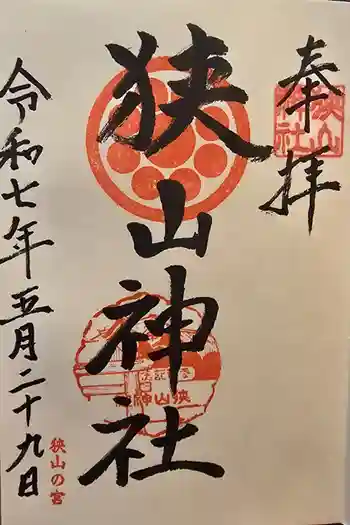 奉拝
狭山神社
狭山神社
令和七年五月二十九日
狭山の宮